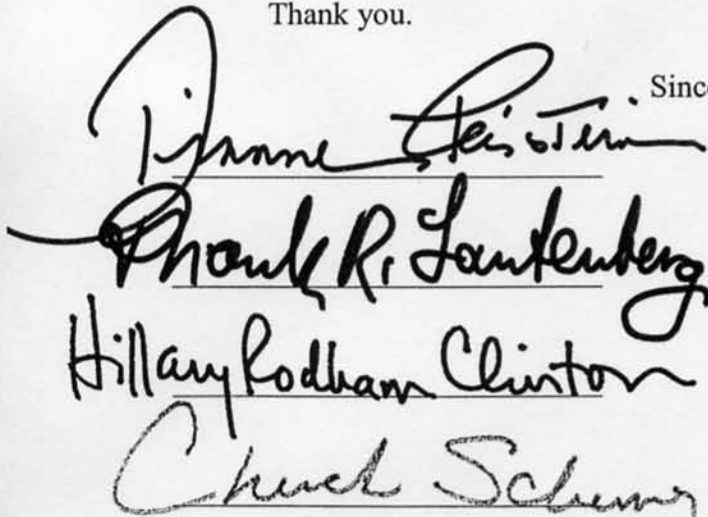 Thank you.
Since
Dianne Feinstein
Frank R. Lautenberg
Hillary Rodham Clinton
Chuck Schumer